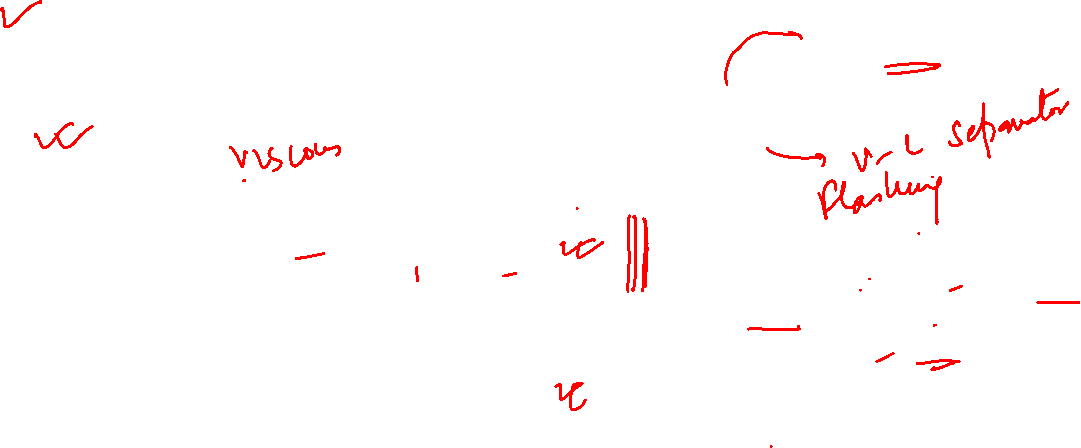 viscous
V-L separator
Flashing